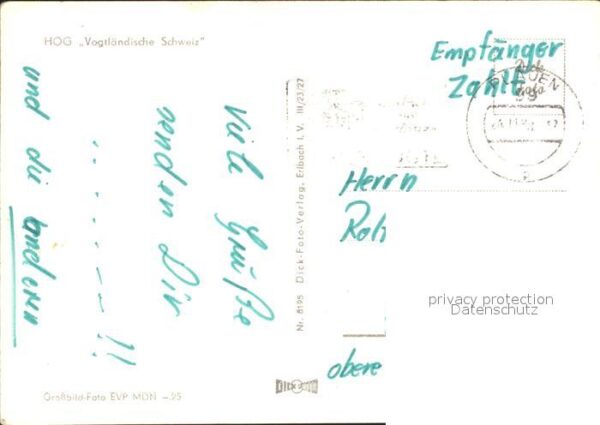 HOG „Vogtländische Schweiz"
Viele Grüße
senden Dir
. . . . . – – !!
und die andern
Großbild-Foto EVP MDN –.25
Nr. 8195 Dick-Foto-Verlag, Erlbach i. V. III/23/27
DICK
Empfänger
Zahlt
Dick
Foto
PLAUEN
Herrn
obere
privacy protection
Datenschutz